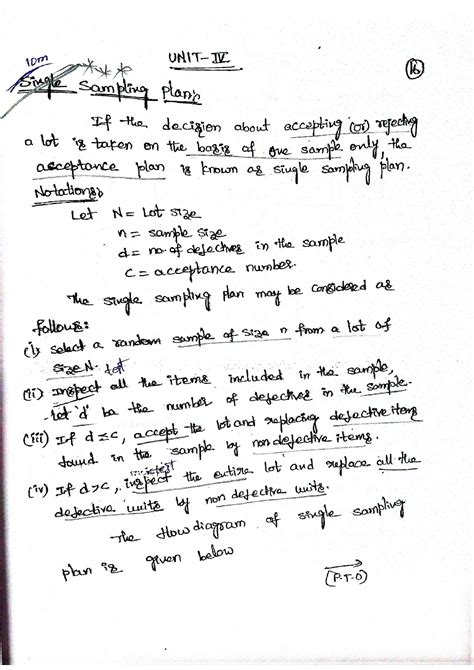 10m
UNIT-IV
16
Single Sampling Plan:
If the decision about accepting (or) rejecting
a lot is taken on the basis of one sample only, the
acceptance plan is known as single sampling plan.
Notations:
Let N = Lot size
n = sample size
d = no. of defectives in the sample
c = acceptance number.
The single sampling plan may be considered as
follows:
(i) select a random sample of size n from a lot of
size N.
(ii) Inspect all the items included in the sample,
Let 'd' be the number of defectives in the sample.
(iii) If d ≤ c, accept the lot and replacing defective items
found in the sample by non defective items.
(iv) If d > c, inspect the entire lot and replace all the
defective units by non defective units.
The flow diagram of single sampling
plan is given below
(P.T.O)